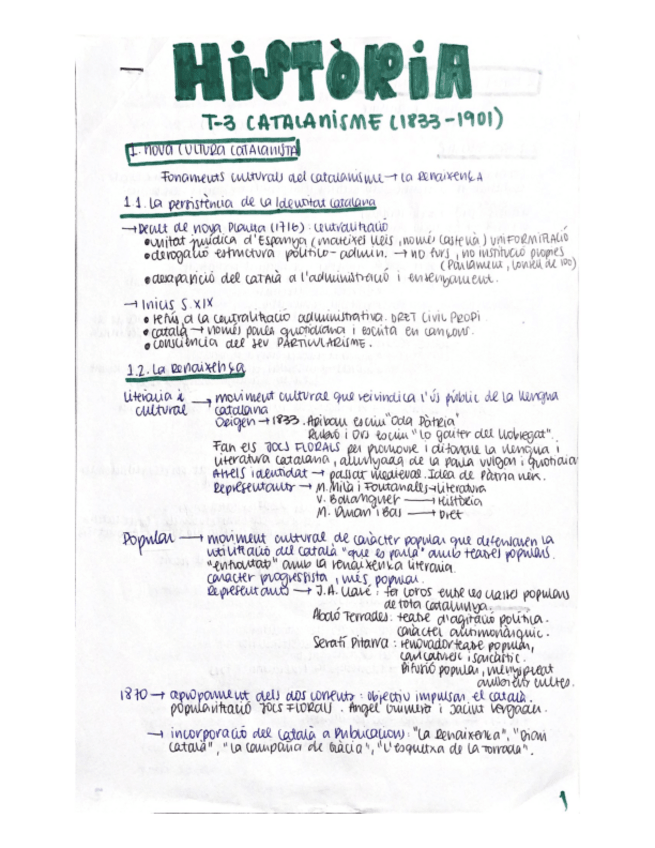 HISTÒRIA
T-3 CATALANISME (1833-1901)
1. NOVA CULTURA CATALANISTA
Fonaments culturals del catalanisme → La Renaixença
1.1. La persistència de la Identitat catalana
→ Decret de nova Planta (1716). Centralització
• unitat jurídica d'Espanya (mateixes lleis, només castellà) UNIFORMITZACIÓ
• derogació estructura político-admin. → no furs, no institució pròpies
(Parlament, Consell de 100)
• desaparició del català a l'administració i ensenyament.
→ Inicis S. XIX
• refús a la centralització administrativa. DRET CIVIL PROPI.
• català → només parla quotidiana i escrita en cançons.
• consciència del seu PARTICULARISME.
1.2. La Renaixença
Literària i → moviment cultural que reivindica l'ús públic de la llengua
cultural catalana
Origen → 1833. Aribau escriu "Oda Pàtria"
Rubió i Ors escriu "Lo gaiter del Llobregat".
Fan els JOCS FLORALS per promoure i difondre la llengua i
literatura catalana, allunyada de la parla vulgar i quotidiana
Arrels i identitat → passat medieval. Idea de Pàtria
Representants → M. Milà i Fontanals → literatura
V. Balanguer → Història
M. Duran i Bas → Dret
Popular → moviment cultural de caràcter popular que defensaven la
utilització del català "que es parla" amb teatres populars.
amb la renaixença literària.
caràcter progressista i més popular.
Representants → J.A. Clavé: fer coros entre les classes populars
de tota Catalunya.
Abdó Terrades: teatre d'agitació política.
caràcter antimonàrquic.
Serafí Pitarra: renovador teatre popular,
caricaturesc i sarcàstic.
Difusió popular, menyspreat
cultes.
1870 → apropament dels dos corrents: objectiu impulsar el català.
popularització JOCS FLORALS. Àngel Guimerà i Jacint Verdaguer.
→ incorporació del català a Publicacions: "La Renaixença", "Diari
Català", "La Campana de Gràcia", "L'esquetxa de la Torratxa".
1